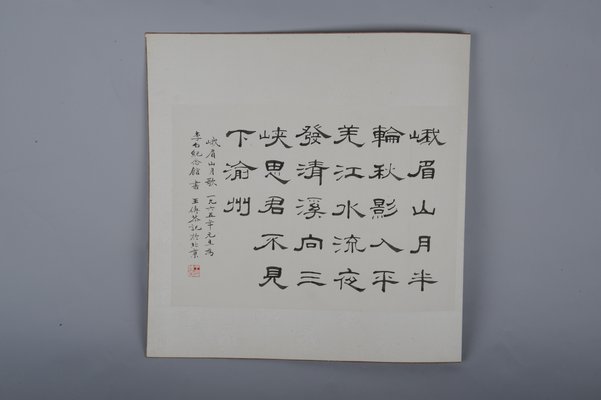 峨眉山月半
輪秋影入平
羌江水流夜
發清溪向三
峽思君不見
下渝州
峨眉山月歌 一九六五年元旦為
李白紀念館書 王傳恭記於北京